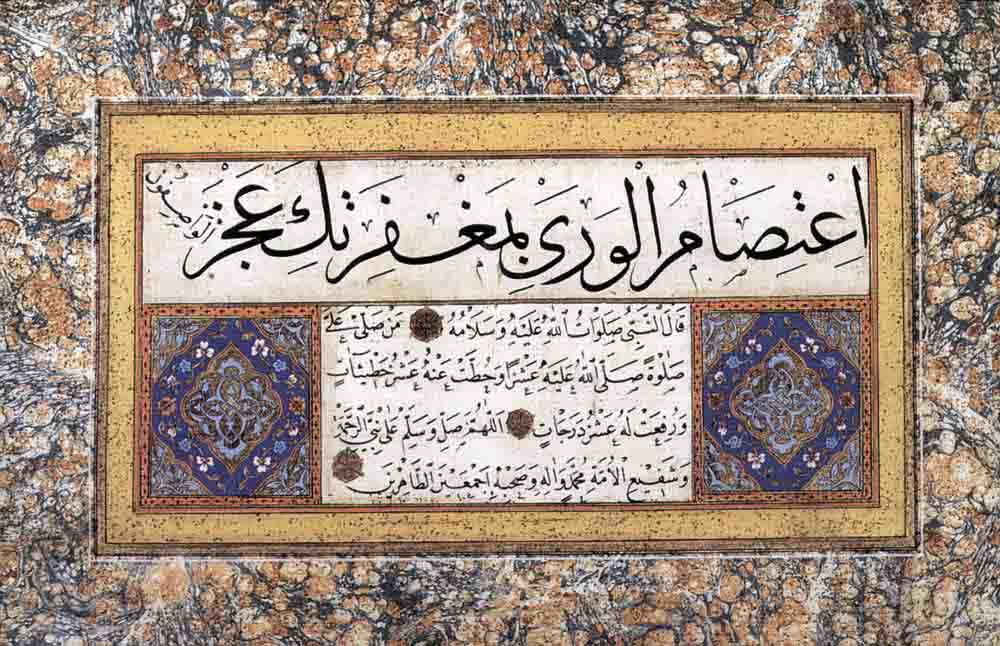 اِعْتِصَامُ الْوَرَىٰ بِمَغْفِرَتِكَ عَجَزَ الواصفون
قَالَ النَّبِيُّ صَلَوَاتُ اللهِ عَلَيْهِ وَسَلَامُهُ مَنْ صَلَّىٰ عَلَيَّ
صَلٰوةً صَلَّى اللهُ عَلَيْهِ عَشْرًا وَحُطَّتْ عَنْهُ عَشْرُ خَطِيئَاتٍ
وَرُفِعَتْ لَهُ عَشْرُ دَرَجَاتٍ اَللّٰهُمَّ صَلِّ وَسَلِّمْ عَلَىٰ نَبِيِّ الرَّحْمَةِ
وَشَفِيعِ الْاُمَّةِ مُحَمَّدٍ وَاٰلِهِ وَصَحْبِهِ اَجْمَعِينَ الطَّاهِرِينَ